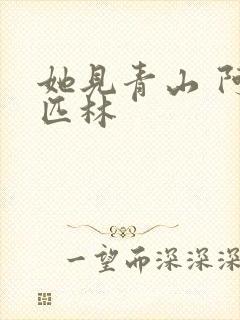 她见青山 阿
匹林
一望而深深深